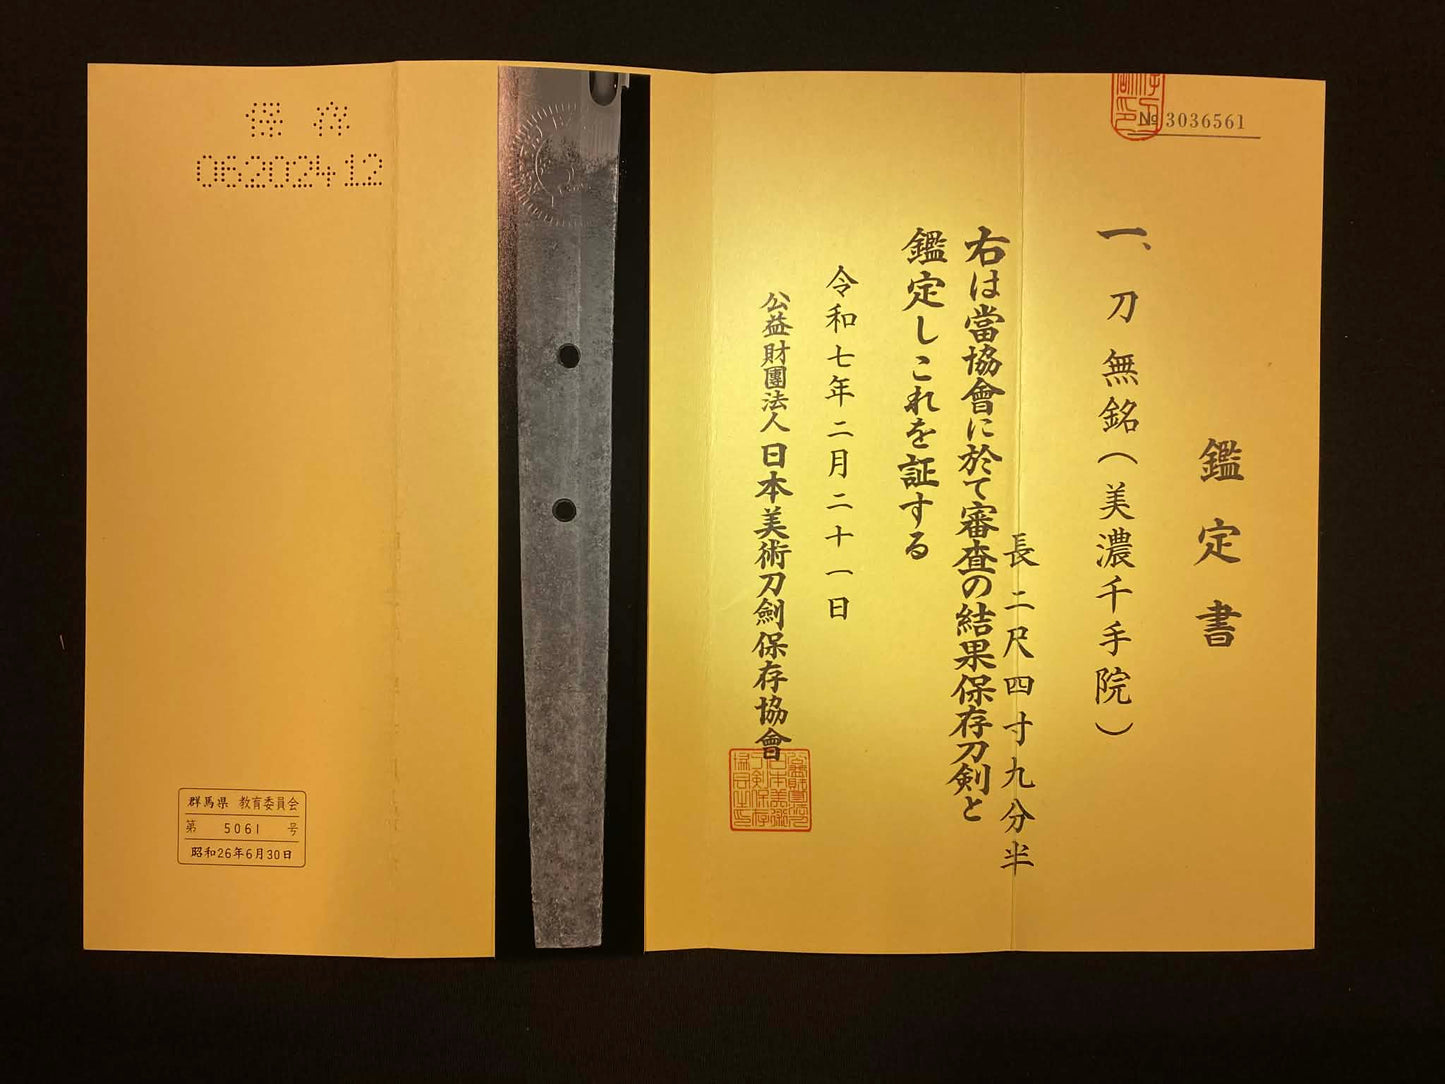 № 3036561
鑑定書
一、刀 無銘(美濃千手院)
長二尺四寸九分半
右は當協會に於て審査の結果保存刀剣と
鑑定しこれを証する
令和七年二月二十一日
公益財團法人 日本美術刀劍保存協會
保存
06202412
群馬県 教育委員会
第 5061 号
昭和26年6月30日